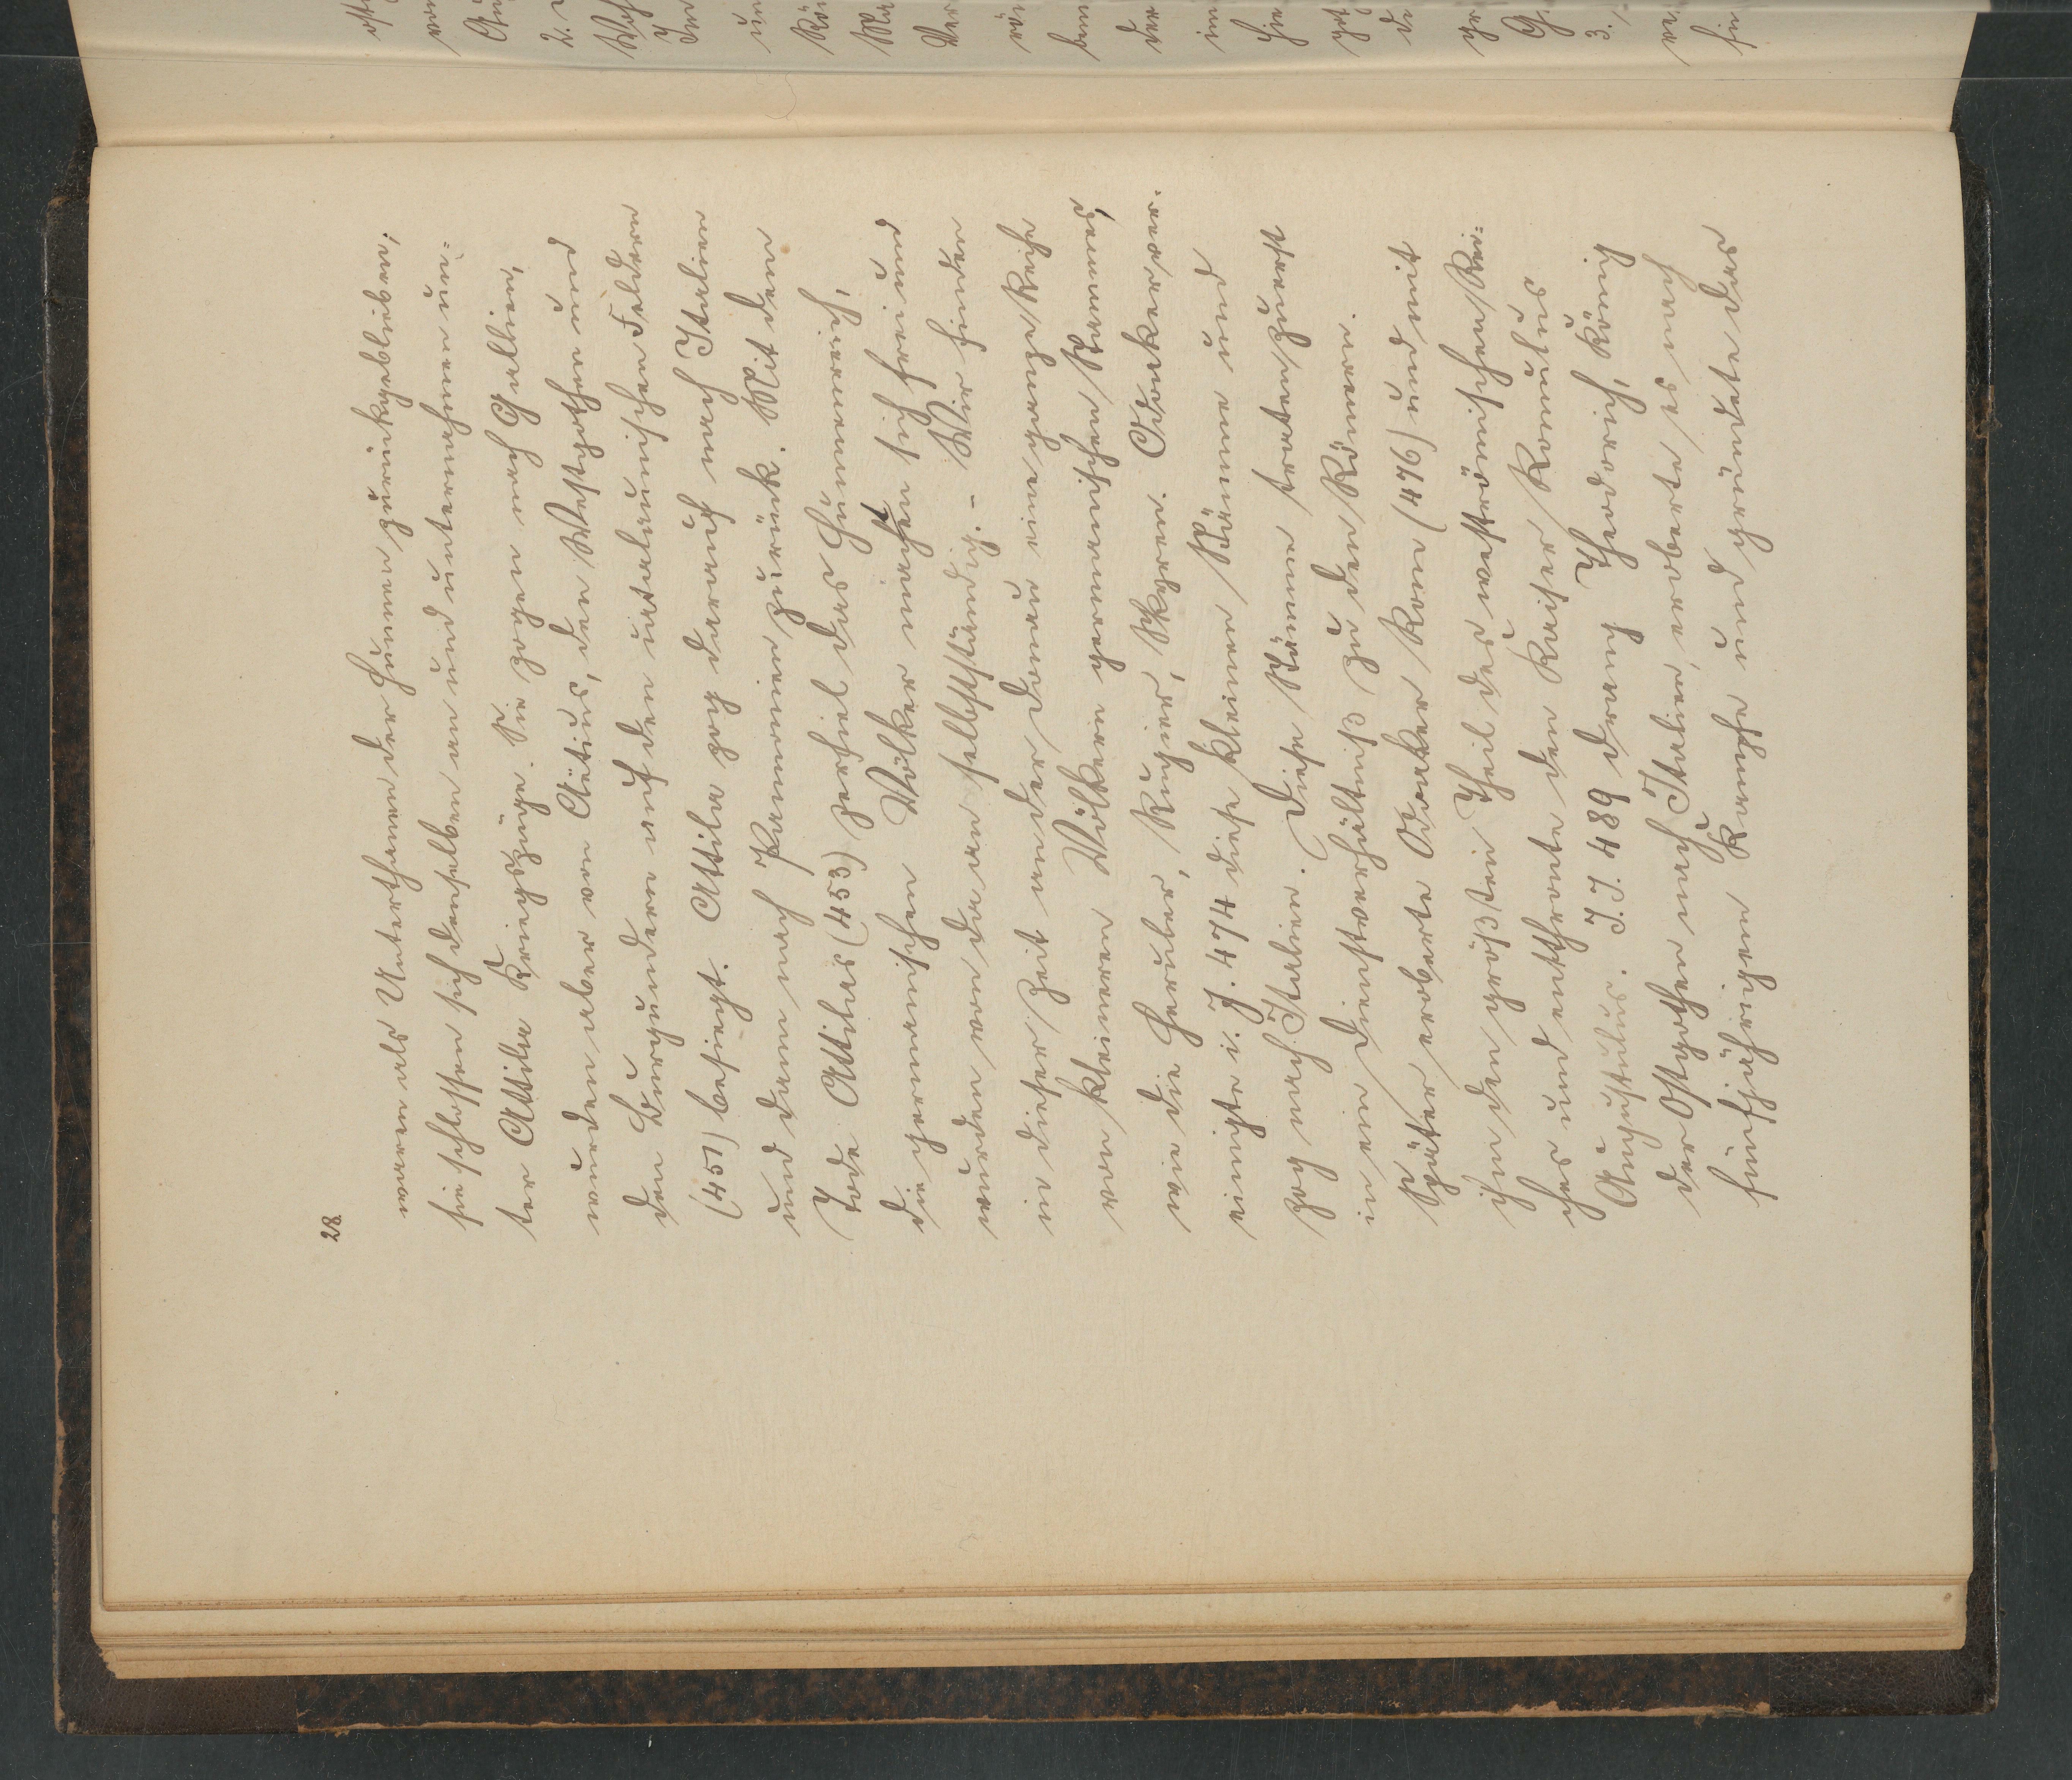 28.
waren als Unterthanen der Hunnen zurückgeblieben,
sie schlossen sich denselben an und unternahmen un=
ter Attila Kriegszüge. Sie zogen nach Gallien,
wurden aber von Aëtius, den Westgothen und
den Burgundern auf den catalaunischen Feldern
(451) besiegt. Attila zog darauf nach Italien
und dann nach Pannonien zurück. Mit dem
Tode Attilas (453) zerfiel das Hunnenreich,
die germanischen Völker machten sich frei und
wurden von da an selbstständig. – Wir finden
in dieser Zeit an der Donau eine ganze Reihe
von kleineren Völkern germanischen Stammes,
wie die Heruler, Rugier, Skyren. Odoaker ver=
einigte i. J. 474 diese kleinen Stämme und
zog nach Italien. Diese Stämme traten zuerst
in ein Dienstverhältniß zu den Römern.
Später eroberte Odoaker Rom (476) und mit
ihm den größten Theil des weströmischen Rei=
ches und entthronte den Kaiser Romulus
Augustulus. I. J. 489 drang Theodorich, König
der Ostgothen nach Italien, eroberte es nach
fünfjährigem Kampfe und gründete das